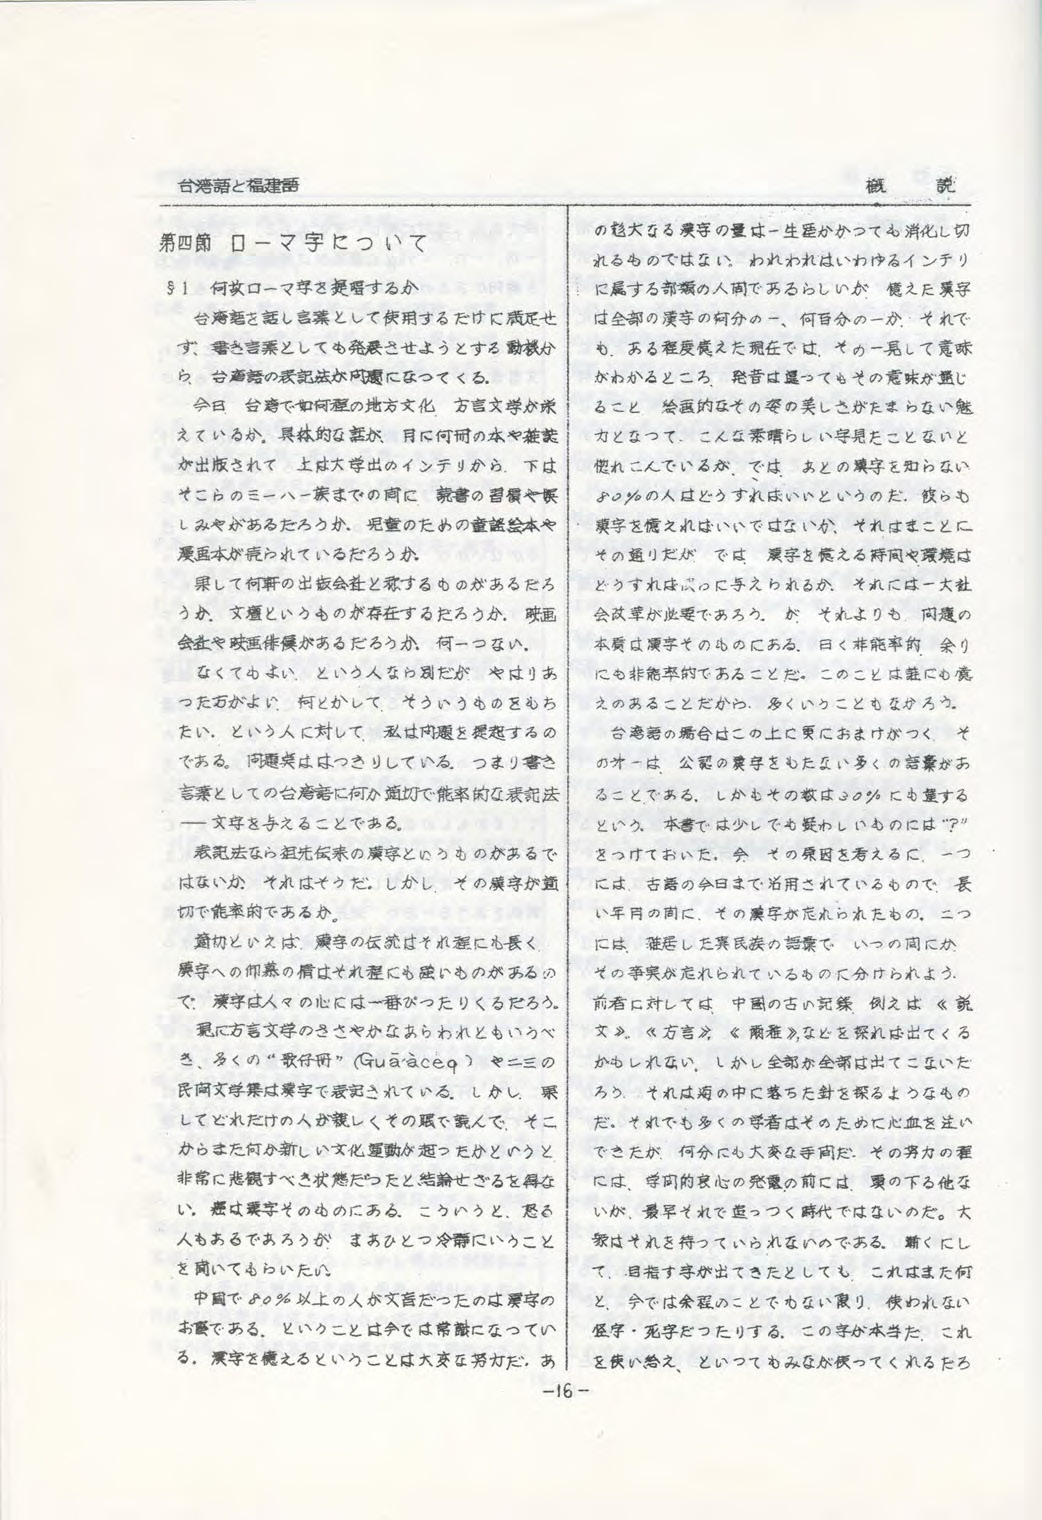 台湾語と福建語
概　説
第四節 ローマ字について
§1 何故ローマ字を提唱するか
台湾語を話し言葉として使用するだけに満足せ
ず、書き言葉としても発展させようとする動機か
ら、台湾語の表記法が問題になってくる。
今日 台湾で如何程の地方文化、方言文学が栄
えているか。具体的な話が、月に何冊の本や雑誌
が出版されて 上は大学出のインテリから、下は
そこらのミーハー族までの間に 読書の習慣や娯
しみやがあるだろうか。児童のための童話絵本や
漫画本が売られているだろうか。
果して何軒の出版会社と称するものがあるだろ
うか。文壇というものが存在するだろうか。映画
会社や映画俳優があるだろうか。何一つない。
なくてもよい、という人なら別だが やはりあ
った方がよい、何とかして、そういうものをもち
たい、という人に対して、私は問題を提起するの
である。問題点ははっきりしている。つまり書き
言葉としての台湾語に何か適切で能率的な表記法
――文字を与えることである。
表記法なら祖先伝来の漢字というものがあるで
はないか。それはそうだ。しかし、その漢字が適
切で能率的であるか。
適切といえば、漢字の伝統はそれ程にも長く、
漢字への仰慕の情はそれ程にも強いものがあるの
で、漢字は人々の心には一番ぴったりくるだろう。
現に方言文学のささやかなあらわれともいうべ
き、多くの“歌仔冊”(Guā-à-cèq) や二三の
民間文学集は漢字で表記されている。しかし、果
してどれだけの人が親しくその眼で読んで、そこ
からまた何か新しい文化運動が起ったかというと、
非常に悲観すべき状態だったと結論せざるを得な
い。癌は漢字そのものにある。こういうと、怒る
人もあるであろうが まあひとつ冷静にいうこと
を聞いてもらいたい。
中国で80%以上の人が文盲だったのは漢字の
お蔭である、ということは今では常識になってい
る。漢字を憶えるということは大変な努力だ。あ
の尨大なる漢字の量は一生涯かかっても消化し切
れるものではない。われわれはいわゆるインテリ
に属する部類の人間であるらしいが 憶えた漢字
は全部の漢字の何分の一、何百分の一か、それで
も、ある程度憶えた現在では、その一見して意味
がわかるところ、発音は違ってもその意味が通じ
ること 絵画的なその姿の美しさがたまらない魅
力となって、こんな素晴らしい字見たことないと
惚れこんでいるが、では、あとの漢字を知らない
80%の人はどうすればいいというのだ。彼らも
漢字を憶えればいいではないか、それはまことに
その通りだが では 漢字を憶える時間や環境は
どうすればぶっに与えられるか。それには一大社
会改革が必要であろう。が それよりも 問題の
本質は漢字そのものにある。曰く非能率的 余り
にも非能率的であることだ。このことは誰にも憶
えのあることだから、多くいうこともなかろう。
台湾語の場合はこの上に更におまけがつく。そ
のオ一は 公認の漢字をもたない多くの語彙があ
ることである。しかもその数は30%にも達する
という。本書では少しでも疑わしいものには“?”
をつけておいた。今 その原因を考えるに、一つ
には、古語の今日まで沿用されているもので、長
い年月の間に、その漢字が忘れられたもの。二つ
には、雑居した異民族の語彙で いつの間にか
その事実が忘れられているものに分けられよう。
前者に対しては 中国の古い記録 例えば《説
文》、《方言》、《爾雅》、などを探れば出てくる
かもしれない。しかし全部が全部は出てこないだ
ろう。それは海の中に落ちた針を探るようなもの
だ。それでも多くの学者はそのために心血を注い
できたが、何分にも大変な手間だ。その努力の程
には、学問的良心の発露の前には、頭の下る他な
いが、最早それで追っつく時代ではないのだ。大
衆はそれを待っていられないのである。漸くにし
て、目指す字が出てきたとしても、これはまた何
と、今では余程のことでもない限り、使われない
怪字・死字だったりする。この字が本当だ、これ
を使い給え、といってもみなが使ってくれるだろ
-16-